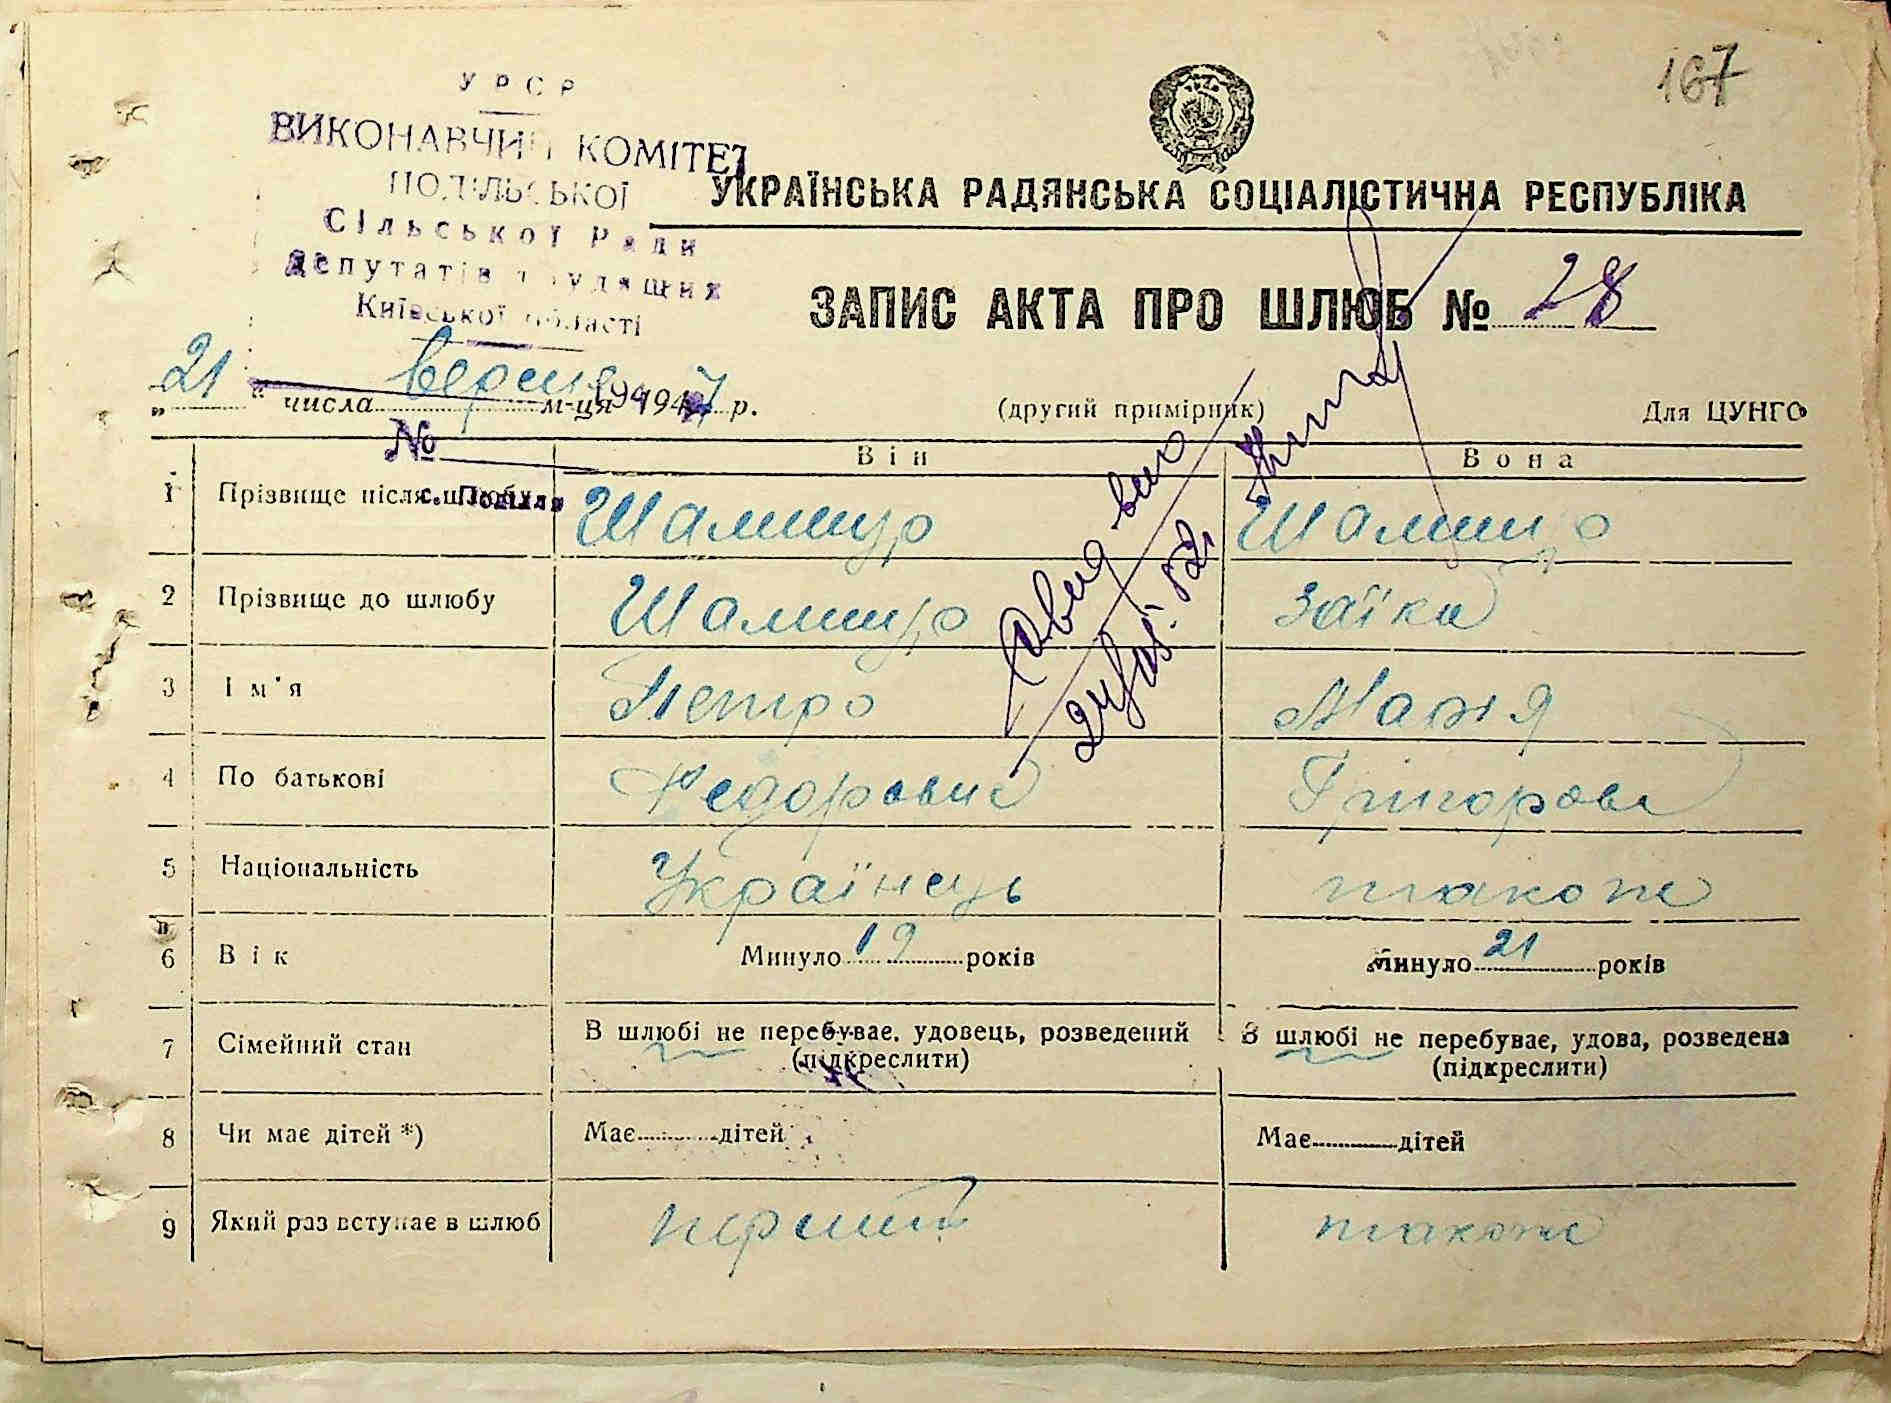 167
УРСР
ВИКОНАВЧИЙ КОМІТЕТ
ПОДІЛЬСЬКОЇ
Сільської Ради
депутатів трудящих
Київської області
№
с. Поділля
УКРАЇНСЬКА РАДЯНСЬКА СОЦІАЛІСТИЧНА РЕСПУБЛІКА
ЗАПИС АКТА ПРО ШЛЮБ № 28
„21“ числа вересня м-ця 1947 р. (другий примірник) Для ЦУНГС
Він Вона
1 Прізвище після шлюбу Шамшур Шамшур
2 Прізвище до шлюбу Шамшур Заїка
3 Ім'я Петро Марія
4 По батькові Федорович Григоровна
5 Національність Українець також
6 Вік Минуло 19 років Минуло 21 років
7 Сімейний стан В шлюбі не перебуває, удовець, розведений В шлюбі не перебуває, удова, розведена
(підкреслити) (підкреслити)
8 Чи має дітей *) Має дітей Має дітей
9 Який раз вступає в шлюб перший також